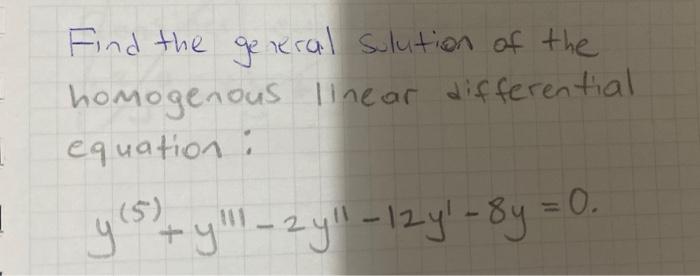 Find the general solution of the
homogenous linear differential
equation:
y⁽⁵⁾+y'''-2y''-12y'-8y=0.